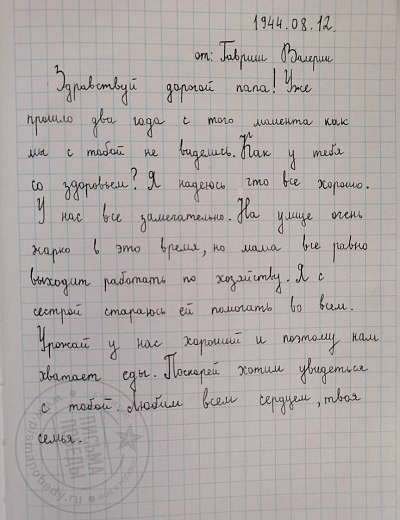 1944.08.12.
от: Гавриш Валерии
Здравствуй дорогой папа! Уже
прошло два года с того момента как
мы с тобой не виделись. Как у тебя
со здоровьем? Я надеюсь что все хорошо.
У нас все замечательно. На улице очень
жарко в это время, но мама все равно
выходит работать по хозяйству. Я с
сестрой стараюсь ей помогать во всем.
Урожай у нас хороший и поэтому нам
хватает еды. Поскорей хотим увидеться
с тобой. Любим всем сердцем, твоя
семья.
ПИСЬМА
ПОБЕДЫ
pismapobedy.ru